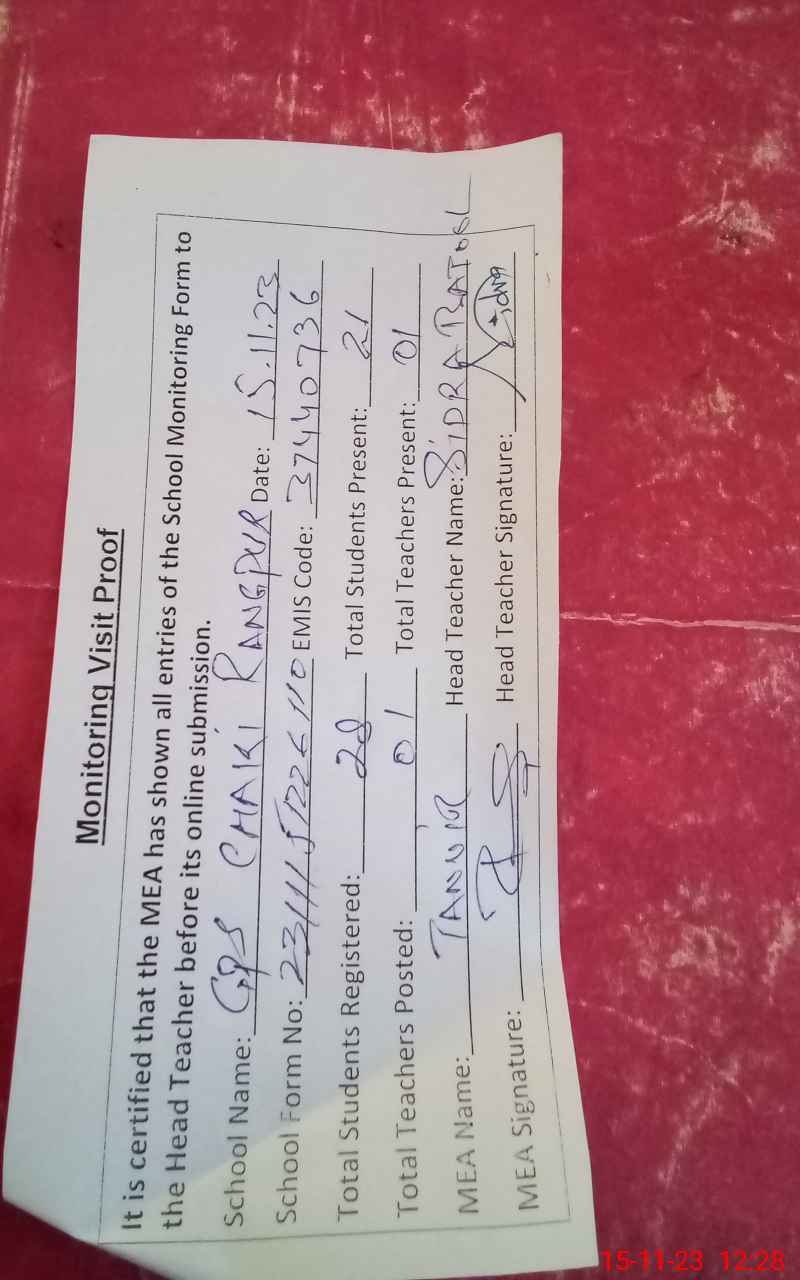 Monitoring Visit Proof
It is certified that the MEA has shown all entries of the School Monitoring Form to
the Head Teacher before its online submission.
School Name: GPS CHAKI RANGPUR Date: 15.11.23
School Form No: 2311151226110 EMIS Code: 37440736
Total Students Registered: 28 Total Students Present: 21
Total Teachers Posted: 01 Total Teachers Present: 01
MEA Name: TANVIR Head Teacher Name: SIDRA BATOOL
MEA Signature: Head Teacher Signature: Sidra
15-11-23 12:28